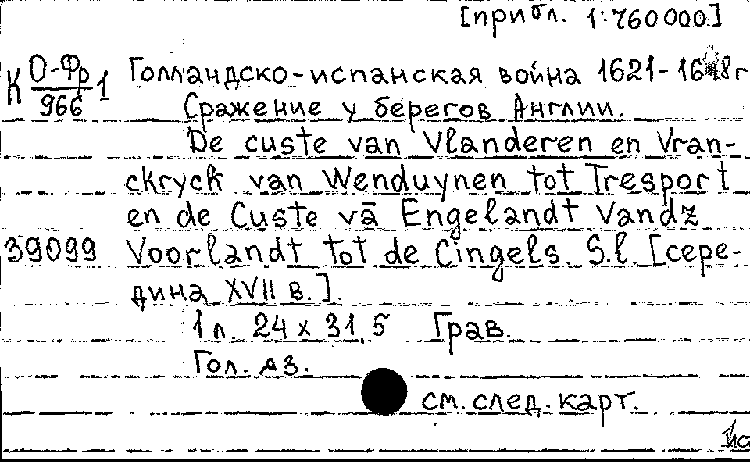 [прибл. 1:760000]
К О-Фр/966 1 Голландско-испанская война 1621-1648г
Сражение у берегов Англии.
De custe van Vlanderen en Vran-
ckryck van Wenduynen tot Tresport
en de Custe vā Engelandt Vandz
39099 Voorlandt tot de Cingels. S.l. [сере-
дина XVII в.].
1 л. 24 x 31,5 Грав.
Гол. яз.
см. след. карт.